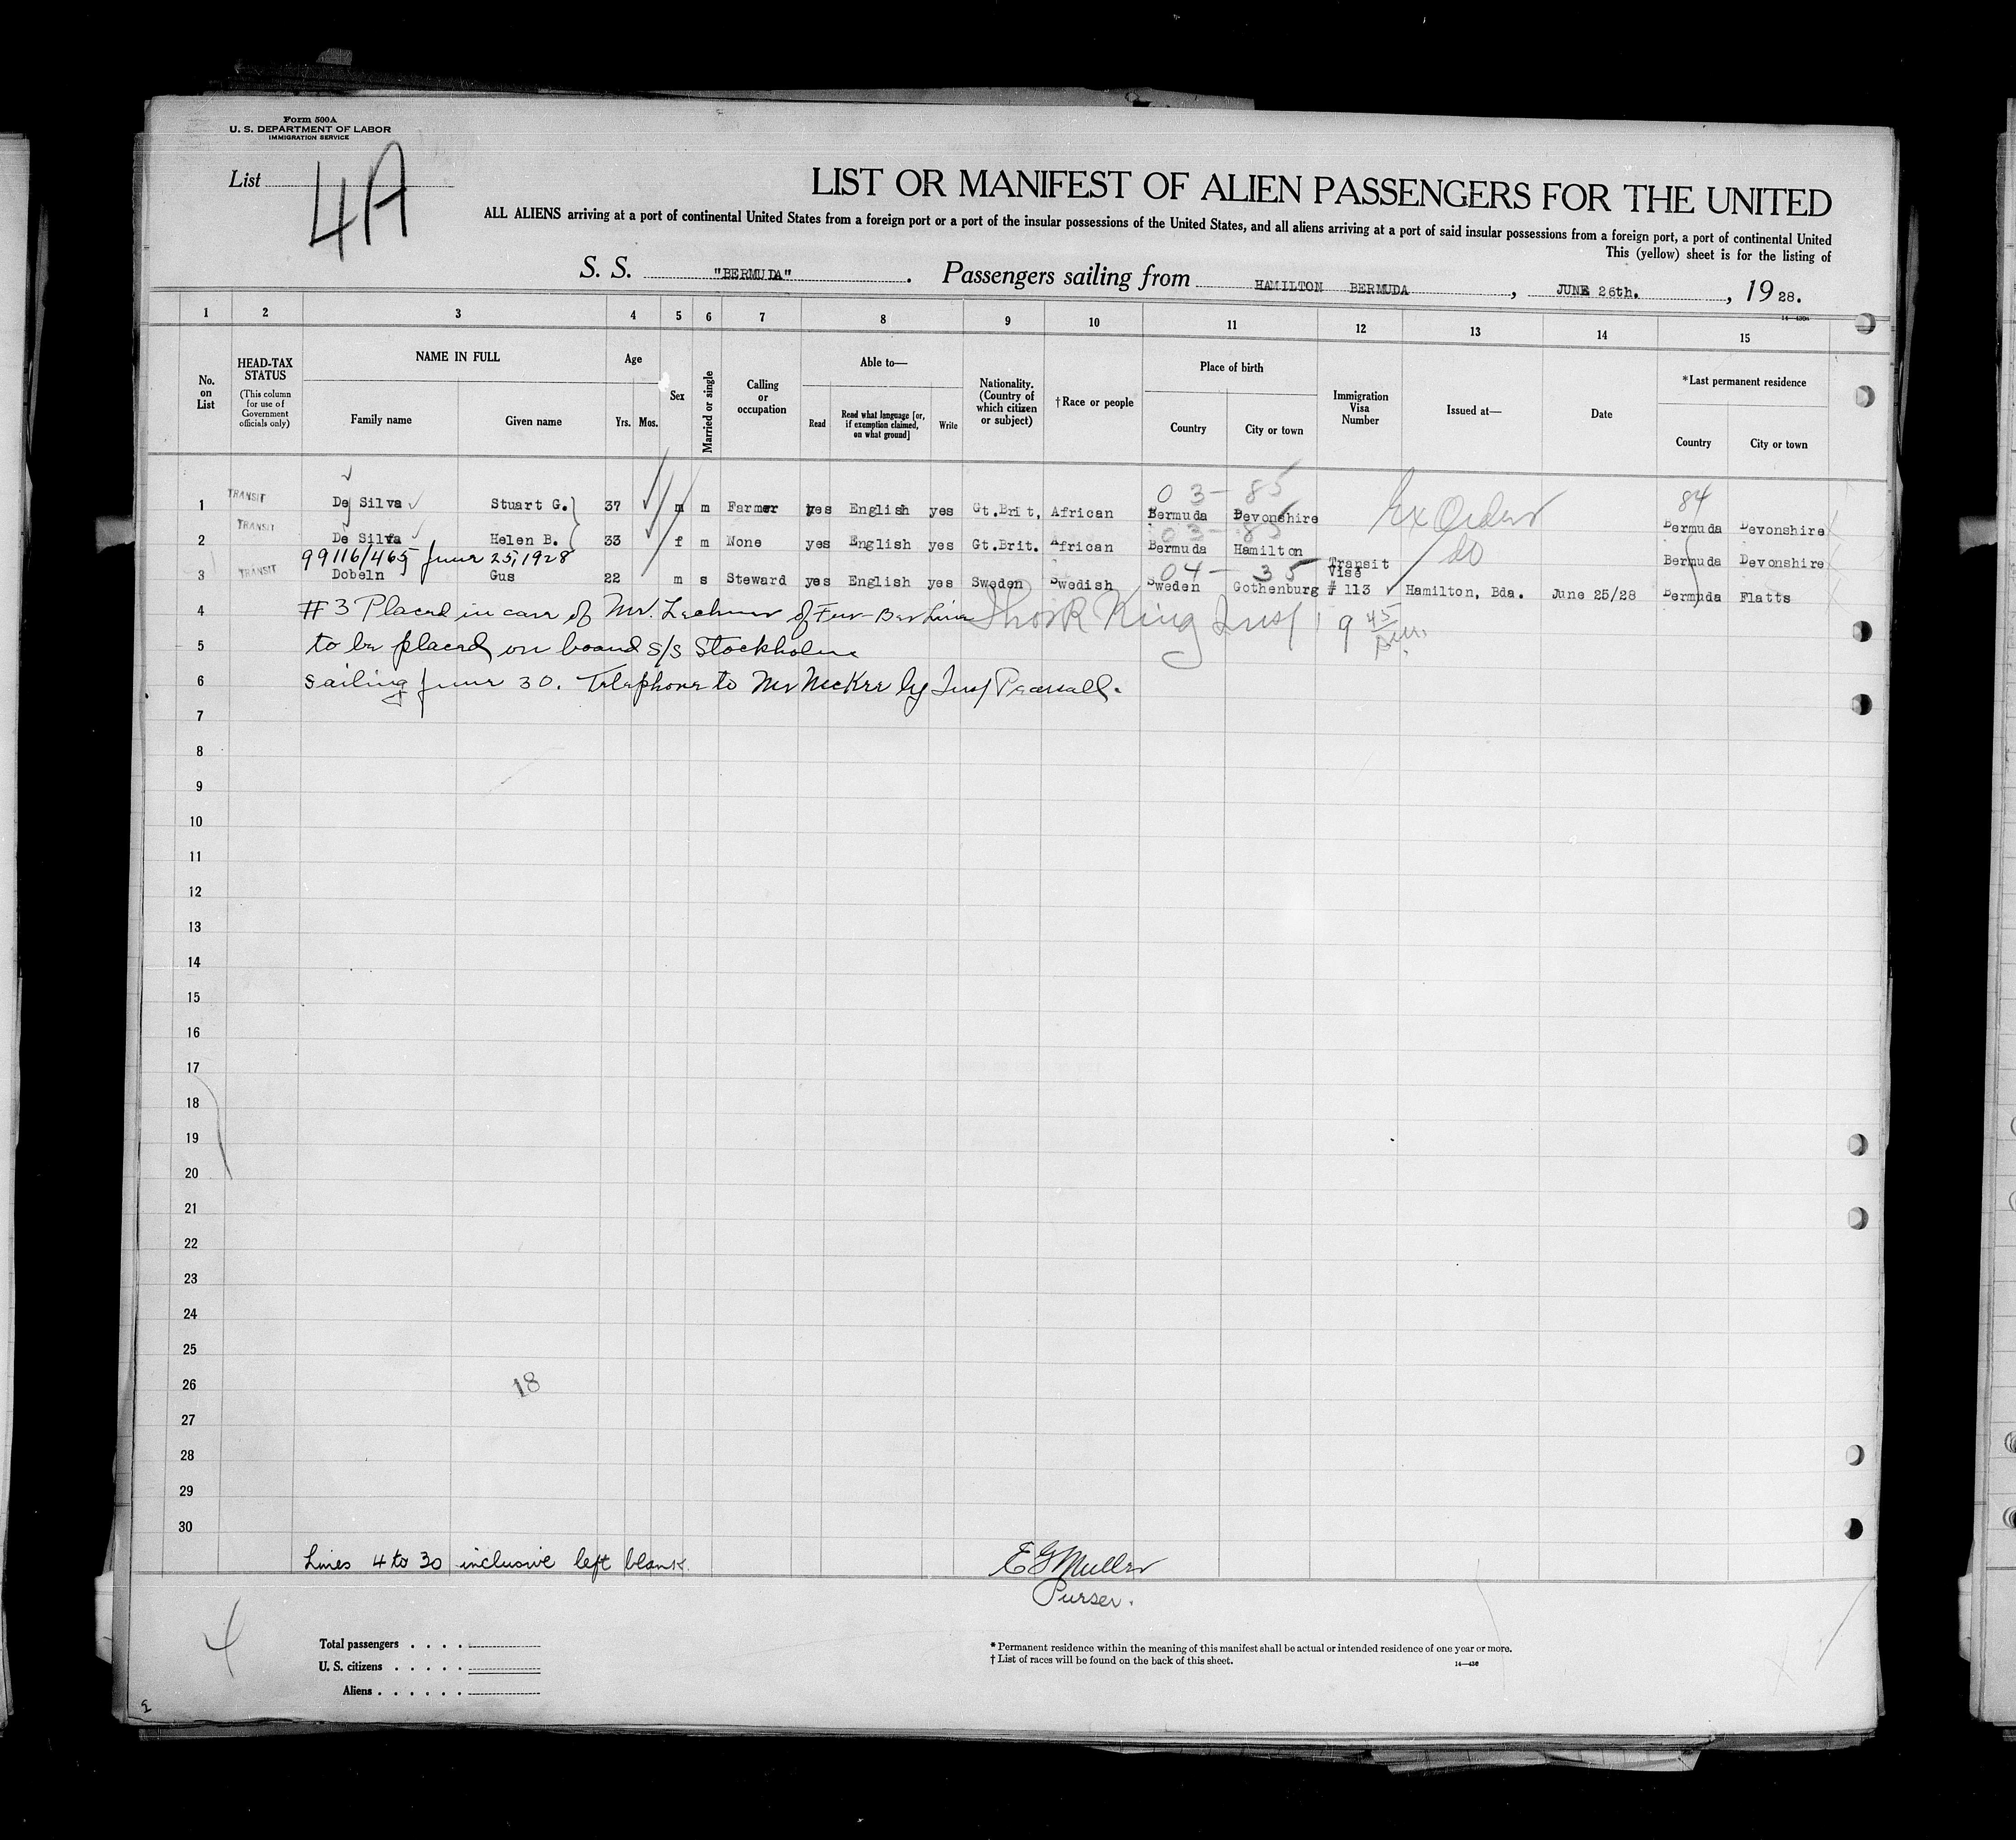 Form 500A
U. S. DEPARTMENT OF LABOR
IMMIGRATION SERVICE
List 4A
LIST OR MANIFEST OF ALIEN PASSENGERS FOR THE UNITED
ALL ALIENS arriving at a port of continental United States from a foreign port or a port of the insular possessions of the United States, and all aliens arriving at a port of said insular possessions from a foreign port, a port of continental United
This (yellow) sheet is for the listing of
S. S. "BERMUDA". Passengers sailing from HAMILTON BERMUDA, JUNE 26th., 1928.
1 2 3 4 5 6 7 8 9 10 11 12 13 14 15
No. on List
HEAD-TAX STATUS (This column for use of Government officials only)
NAME IN FULL
Family name
Given name
Age
Yrs. Mos.
Sex
Married or single
Calling or occupation
Able to—
Read
Read what language [or, if exemption claimed, on what ground]
Write
Nationality. (Country of which citizen or subject)
†Race or people
Place of birth
Country
City or town
Immigration Visa Number
Issued at—
Date
*Last permanent residence
Country
City or town
03- 85
84
1 TRANSIT De Silva Stuart G. 37 m m Farmer yes English yes Gt.Brit, African Bermuda Devonshire Ex Order Bermuda Devonshire
03- 85
2 TRANSIT De Silva Helen B. 33 f m None yes English yes Gt.Brit. African Bermuda Hamilton do Bermuda Devonshire
99116/465 June 25, 1928
04- 35
3 TRANSIT Dobeln Gus 22 m s Steward yes English yes Sweden Swedish Sweden Gothenburg Transit Vise # 113 Hamilton, Bda. June 25/28 Bermuda Flatts
4 #3 Placed in care of Mr. of Fur-Ber Line King Insp 9 45
5 to be placed on board S/S Stockholm
6 sailing June 30. Telephone to Mr McKee by Insp Pearsall.
7
8
9
10
11
12
13
14
15
16
17
18
19
20
21
22
23
24
25
26 18
27
28
29
30
Lines 4 to 30 inclusive left blank.
E G Muller
Purser.
4
Total passengers
U. S. citizens
Aliens
* Permanent residence within the meaning of this manifest shall be actual or intended residence of one year or more.
† List of races will be found on the back of this sheet.
14—430